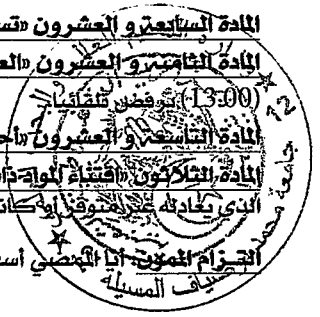 المادة السابعة و العشرون «تس
المادة الثامنة و العشرون «الع
(13:00) ترفض تلقائيا.
المادة التاسعة و العشرون «أح
المادة الثلاثون «اقتناء المواد ذا
الذي يعادله غير متوفر أو كان
التزام الممون: أنا الممضي أس
جامعة محمد
بوضياف المسيلة